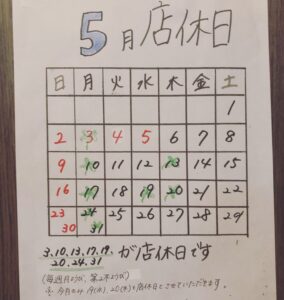 5月店休日
日 月 火 水 木 金 土
1
2 3 4 5 6 7 8
9 10 11 12 13 14 15
16 17 18 19 20 21 22
23 24 25 26 27 28 29
30 31
3.10.13.17.19.
20.24.31 が店休日です
(毎週月ようび、第2木ようび)
今月のみ 19(水)、20(木)も店休日とさせていただきます。